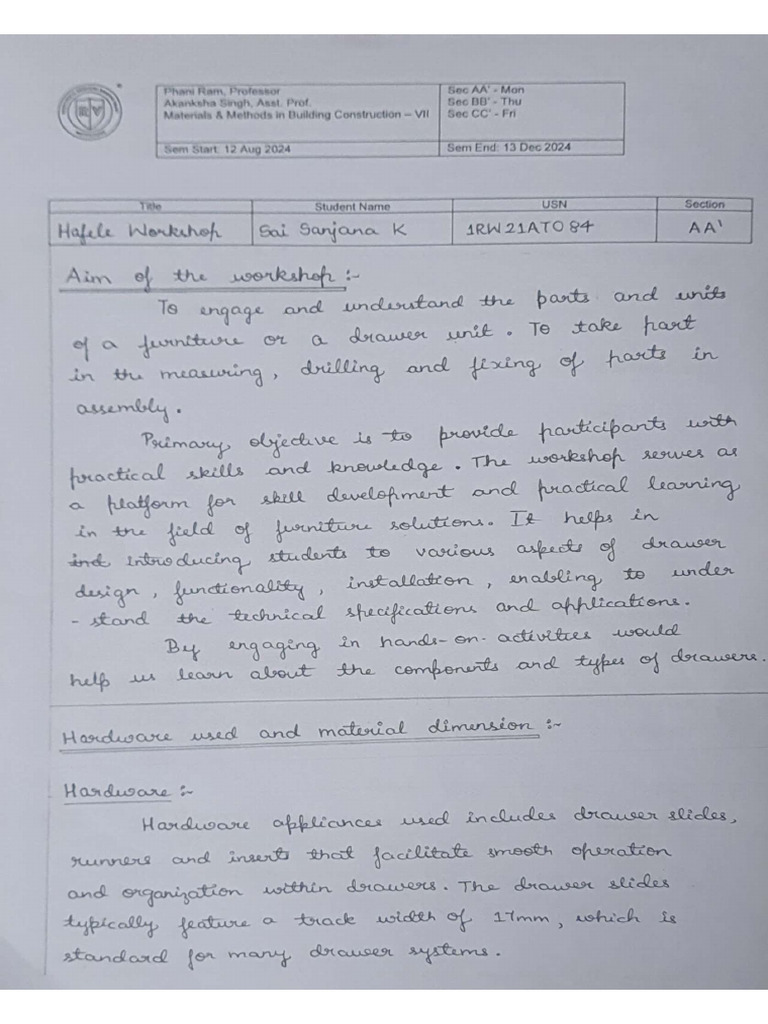 Phani Ram, Professor
Akanksha Singh, Asst. Prof.
Materials & Methods in Building Construction – VII
Sec AA' - Mon
Sec BB' - Thu
Sec CC' - Fri
Sem Start: 12 Aug 2024
Sem End: 13 Dec 2024
Title
Student Name
USN
Section
Hafele Workshop
Sai Sanjana K
1RW21AT084
AA'
Aim of the workshop :-
To engage and understand the parts and units
of a furniture or a drawer unit. To take part
in the measuring, drilling and fixing of parts in
assembly.
Primary objective is to provide participants with
practical skills and knowledge. The workshop serves as
a platform for skill development and practical learning
in the field of furniture solutions. It helps in
ind introducing students to various aspects of drawer
design, functionality, installation, enabling to under
- stand the technical specifications and applications.
By engaging in hands-on-activities would
help us learn about the components and types of drawers.
Hardware used and material dimension :-
Hardware :-
Hardware appliances used includes drawer slides,
runners and inserts that facilitate smooth operation
and organization within drawers. The drawer slides
typically feature a track width of 17mm, which is
standard for many drawer systems.